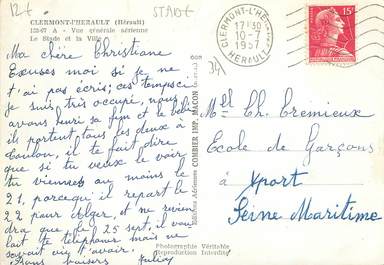 12f
STADE
CLERMONT-L'HERAULT (Hérault)
135-07 A - Vue générale aérienne
Le Stade et la Ville
Ma chère Christiane
Excuses moi si je ne
t'ai pas écris; ces temps ci
je suis très occupé, nous
avons reuni sa fem et le bébé
ils partent tous les deux à
Toulon, il te fait dire
que si tu veux le voir
tu viennes au moins le
21, parceque il repart le
22 pour Alger, et ne revien
dra que le 25 sept. il vou
lait te téléphoner mais ne
savait où t'avoir.
Bons baisers
Editions Aériennes COMBIER IMP. MACON
Photographie Véritable
Reproduction Interdite
CLERMONT-L'HE
17H30
10-7
1957
HERAULT
15F
34
Mlle Ch. Cremieux
Ecole de Garçons
à Yport
Seine Maritime